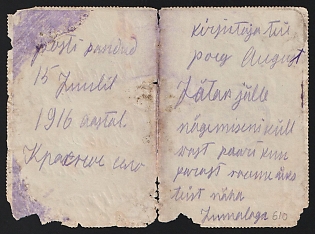 posti pandud
15 Juulil
1916 aastal
Красное село
kirjutaja teie
poeg August
Jätan jälle
nägemiseni küll
wast paari kuu
parast saame üks
teist näha
Jumalaga